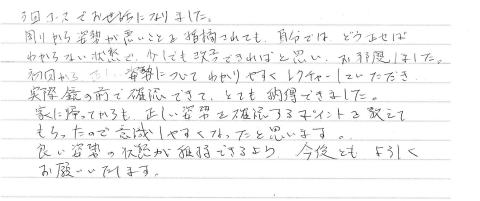 3回コースでお世話になりました。
周りから姿勢が悪いことを指摘されても、自分では、どう正せば
わからない状態で、少しでも改善できればと思い、お邪魔しました。
初回から 正しい姿勢についてわかりやすくレクチャーしていただき、
実際鏡の前で確認できて、とても納得できました。
家に帰ってからも、正しい姿勢を確認するポイントを教えて
もらったので意識しやすくなったと思います。
良い姿勢の状態が維持できるよう、今後ともよろしく
お願いいたします。